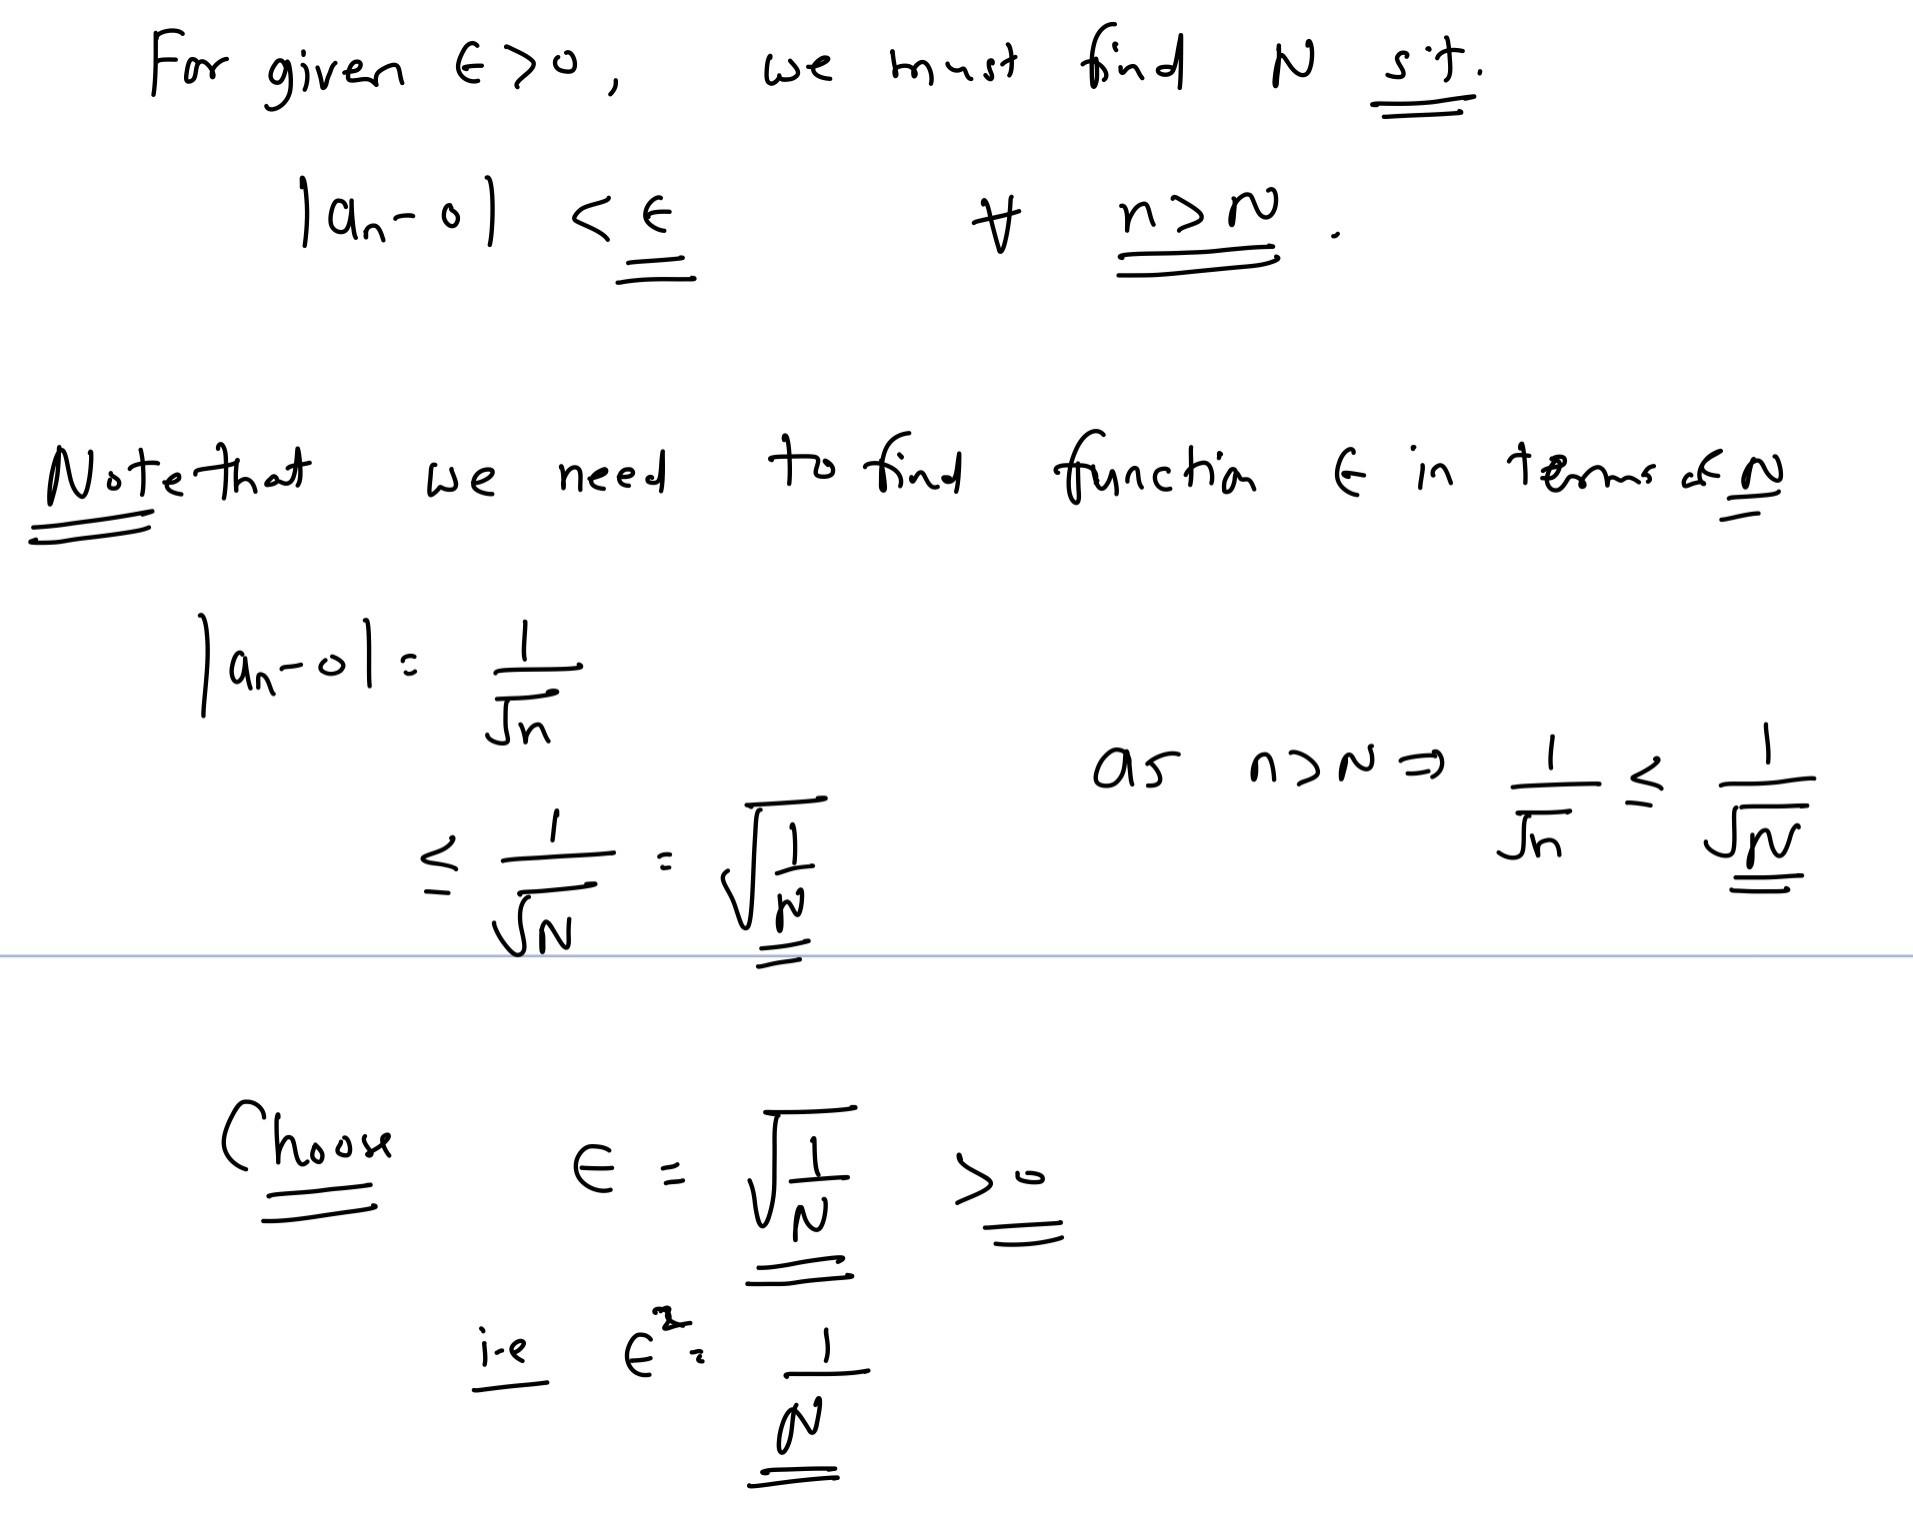 For given ϵ>0, we must find N s.t.
|aₙ-0| < ϵ ∀ n>N.
Note that we need to find function ϵ in terms of N
|aₙ-0| = 1/√n
as n>N ⇒ 1/√n ≤ 1/√N
≤ 1/√N = √(1/N)
Choose ϵ = √(1/N) >0
i.e ϵ² = 1/N